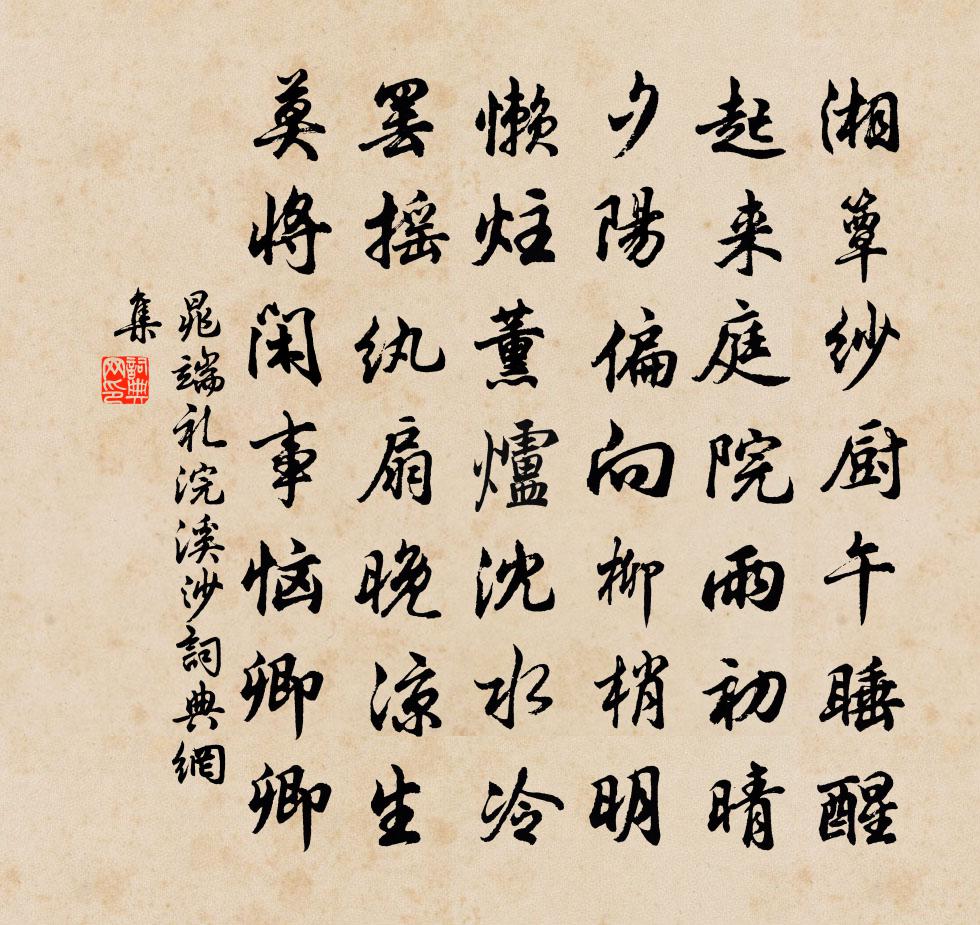 湘簟紗厨午睡醒
起来庭院雨初晴
夕陽偏向柳梢明
懒炷薰爐沈水冷
罢摇纨扇晚凉生
莫将闲事恼卿卿
晁端礼浣溪沙詞典網
集
詞典
网印